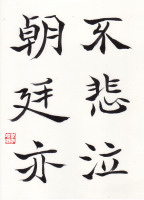 不悲泣
朝廷亦